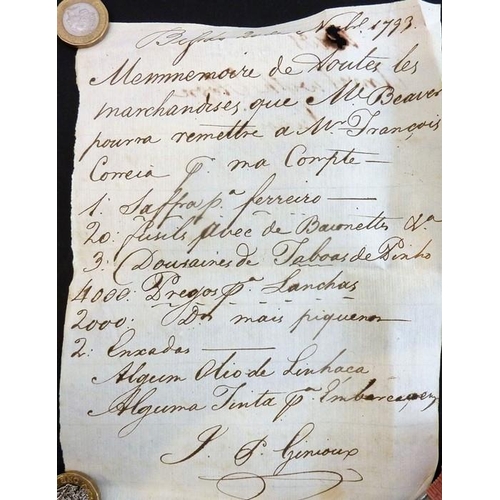 Novbr. 1793.
Memmemoire de Toutes les
marchandises, que Mr. Beaver
pourra remettre a Mr. François
Correia pr. ma Compte—
1: Saffra pa. ferreiro—
20: fusils Avec de Baionettes &a
3: Dousaines de Taboas de Pinho
4000: Pregos pa. Lanchas
2000: Dos. mais piquenos
2: Enxadas—
Algum Olio de Linhaça
Alguma Tinta pa. Embarcaçoens
J. P. Ginioux